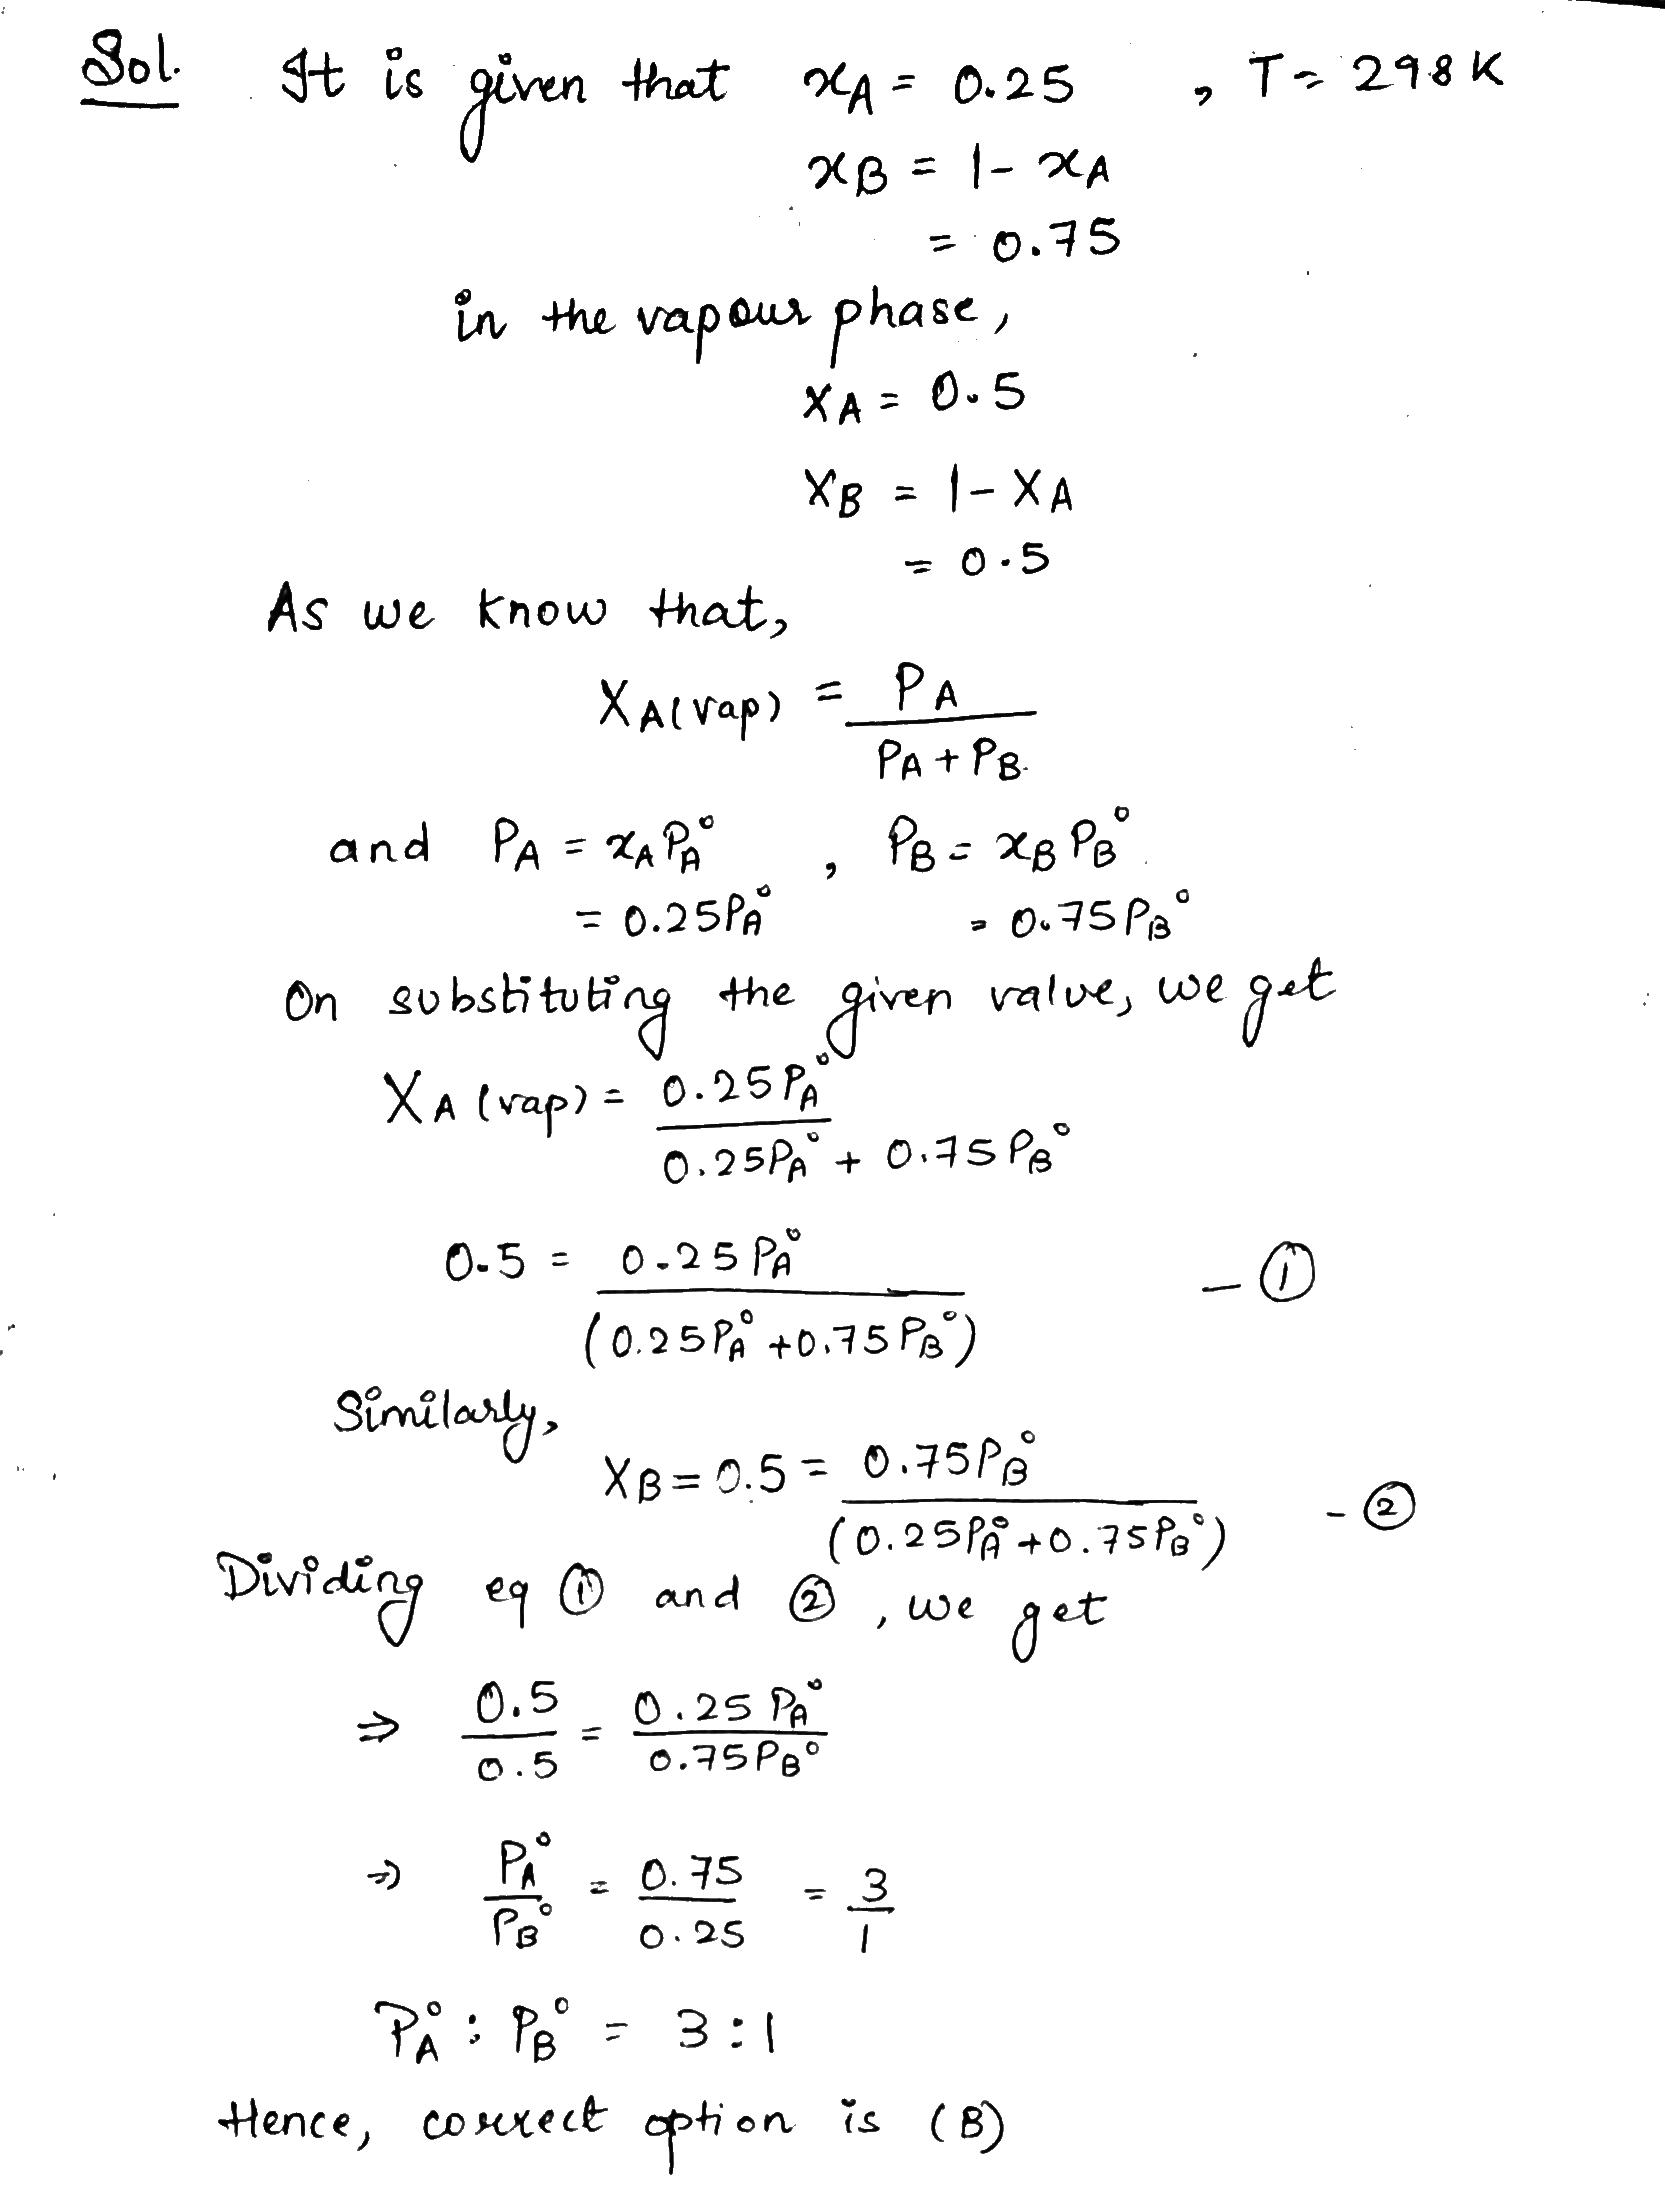 Sol. It is given that xA = 0.25 , T = 298 K
xB = 1 - xA
= 0.75
in the vapour phase,
XA = 0.5
XB = 1 - XA
= 0.5
As we know that,
XA(vap) = PA / PA + PB
and PA = xA PA° , PB = xB PB°
= 0.25 PA° = 0.75 PB°
On substituting the given value, we get
XA (vap) = 0.25 PA° / 0.25 PA° + 0.75 PB°
0.5 = 0.25 PA° / (0.25 PA° + 0.75 PB°) - ①
Similarly,
XB = 0.5 = 0.75 PB° / (0.25 PA° + 0.75 PB°) - ②
Dividing eq ① and ② , we get
⇒ 0.5 / 0.5 = 0.25 PA° / 0.75 PB°
⇒ PA° / PB° = 0.75 / 0.25 = 3 / 1
PA° : PB° = 3 : 1
Hence, correct option is (B)